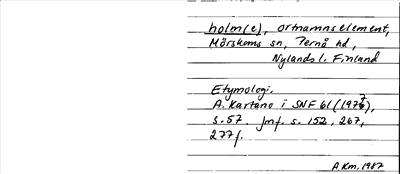 holm(e), ortnamnselement,
Mörskoms sn, Pernå hd,
Nylands l. Finland
Etymologi.
A. Kartano i SNF 61 (1977),
s. 57. Jmf. s. 152, 267,
277f.
A.Km. 1987